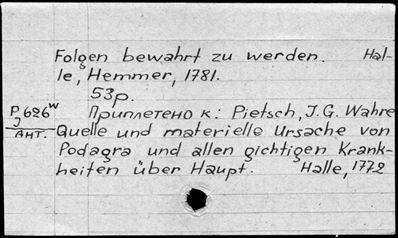 Folgen bewahrt zu werden. Hal-
le, Hemmer, 1781.
53р.
P/626ᵂ Приплетено к: Pietsch, J.G. Wahre
J
Ант. Quelle und materielle Ursache von
Podagra und allen gichtigen Krank-
heiten über Haupt. Halle, 1772